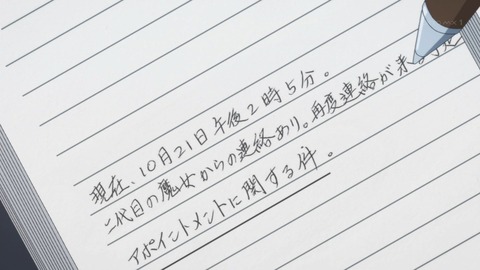 現在、10月21日午後2時5分。
二代目の魔女からの連絡あり。再度連絡が来る予定
アポイントメントに関する件。